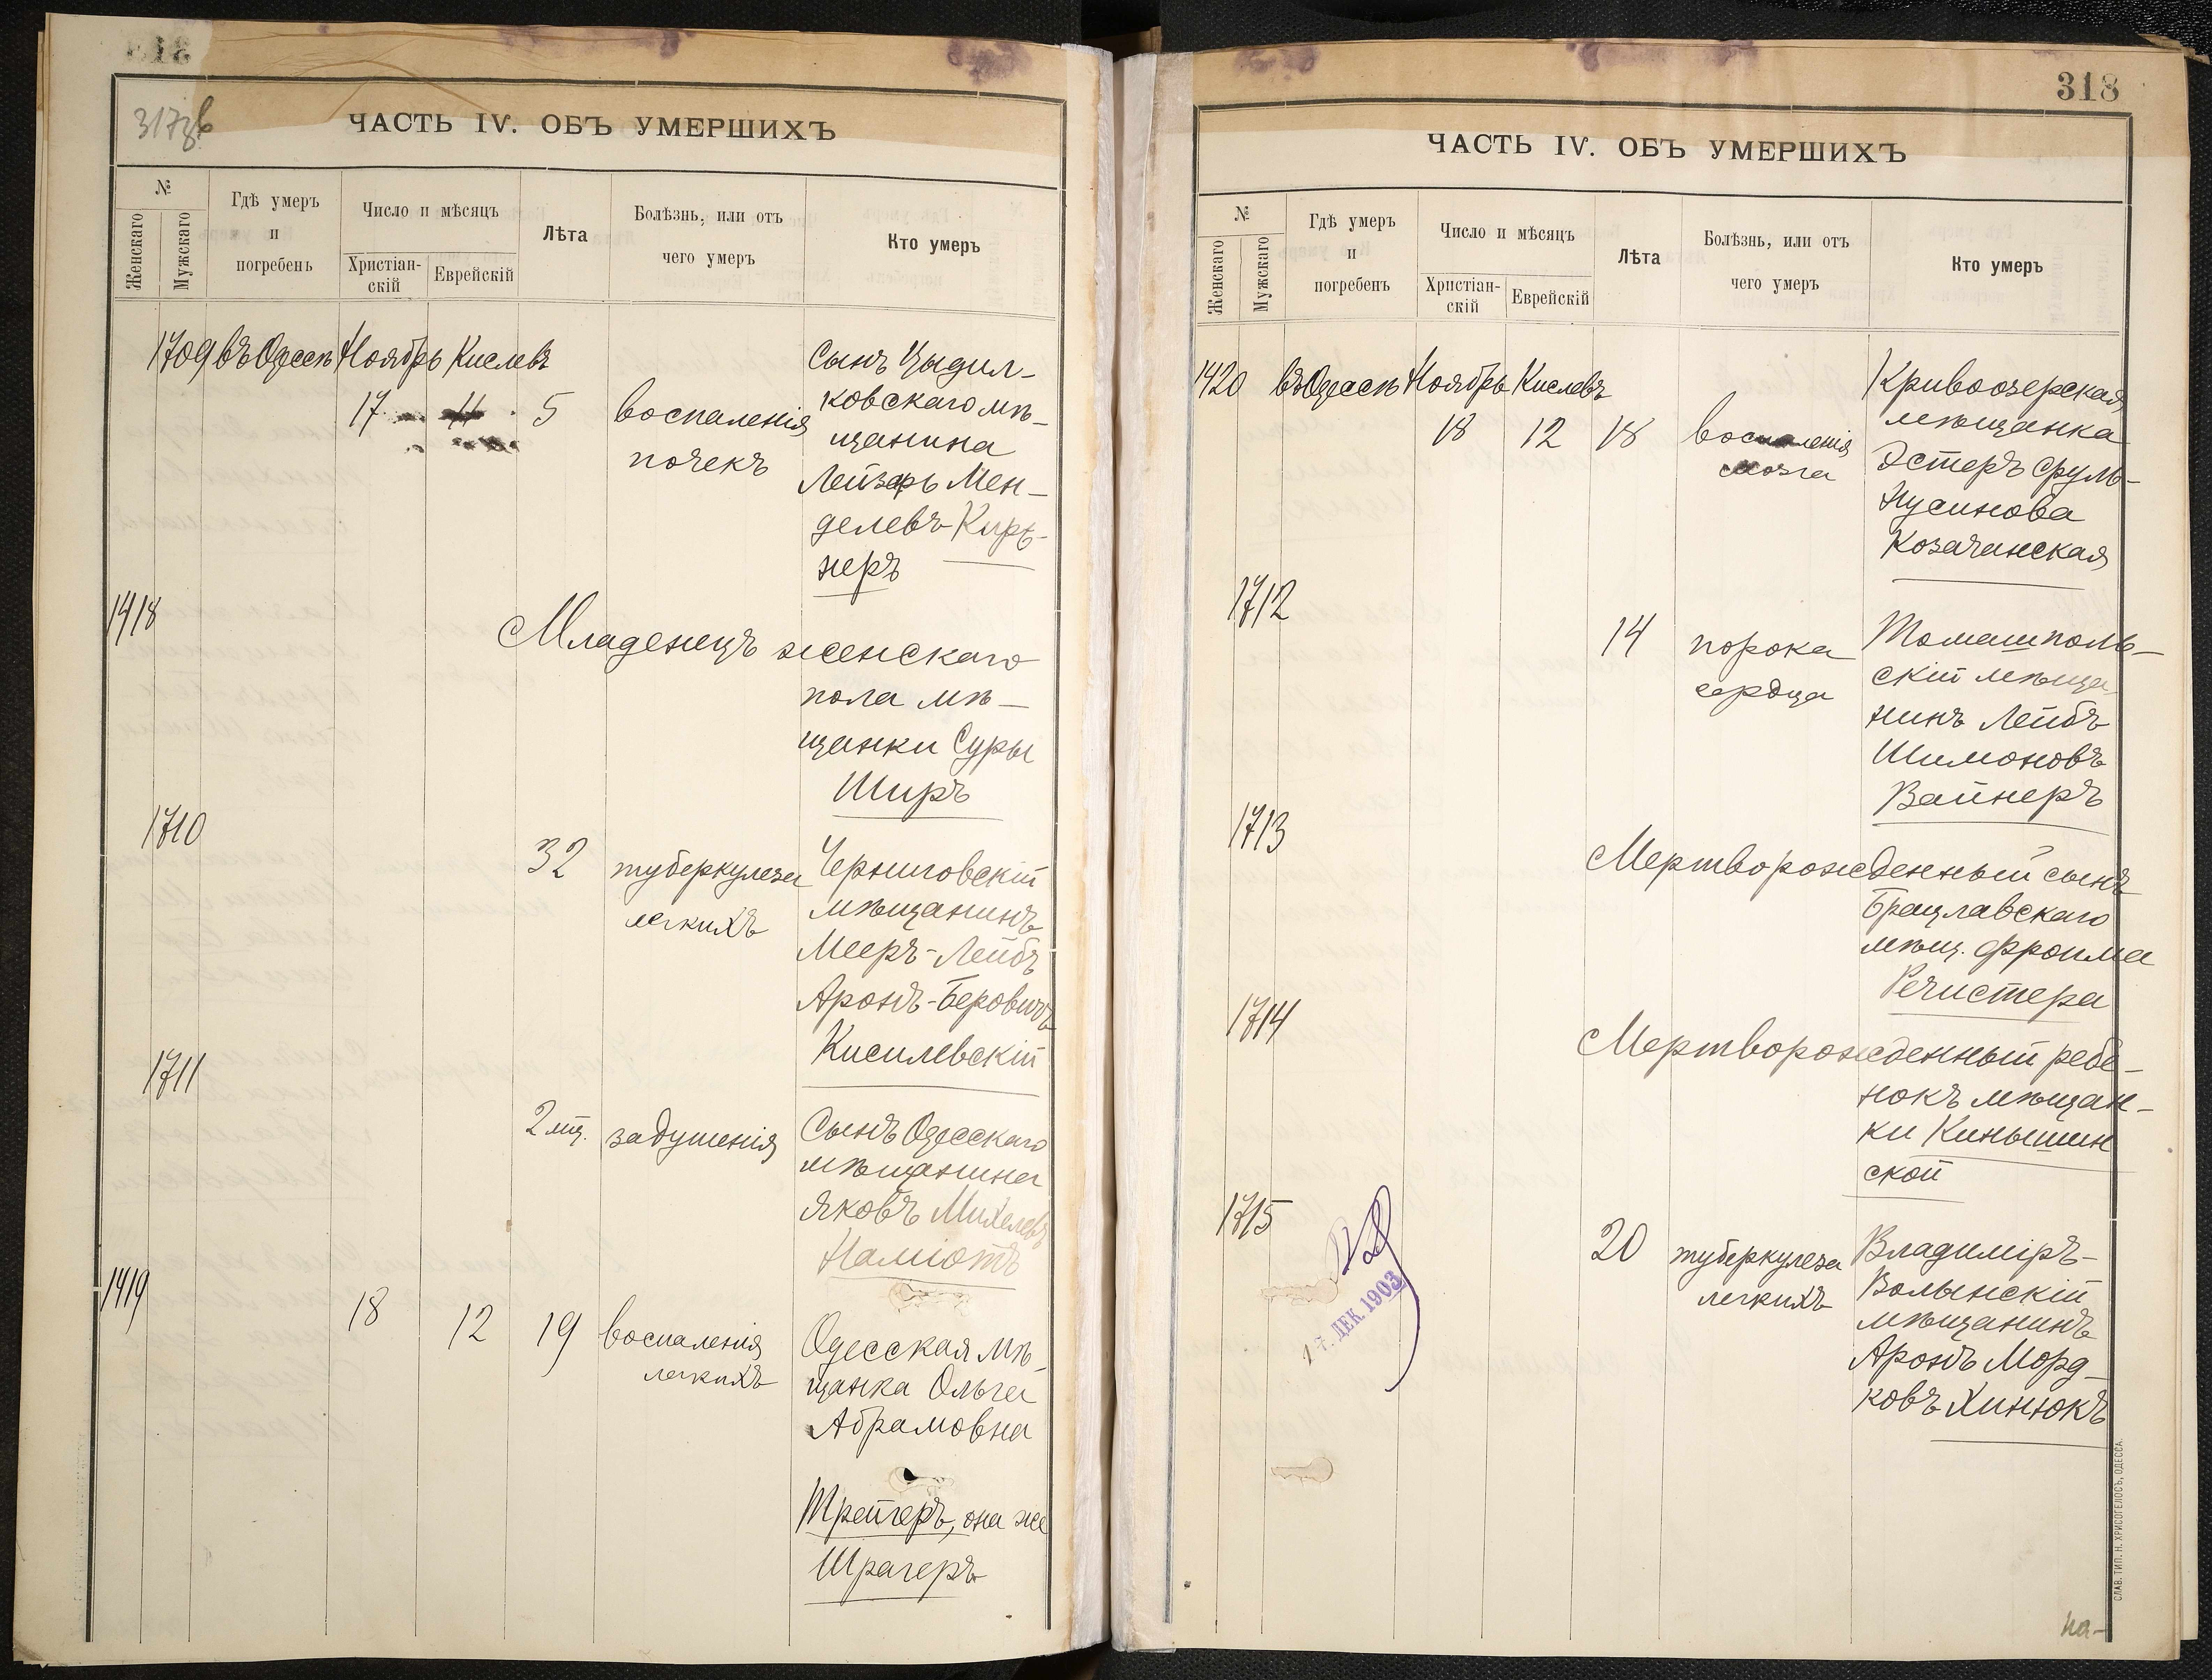 317зв
ЧАСТЬ IV. ОБЪ УМЕРШИХЪ
№
Женскаго
Мужскаго
Гдѣ умеръ
и
погребенъ
Число и мѣсяцъ
Христіан-
скій
Еврейскій
Лѣта
Болѣзнь, или отъ
чего умеръ
Кто умеръ
1709 въ Одессѣ Ноябрь Кислевъ
17 11 5 воспаленія
почекъ
Сынъ Цыдил-
ковскаго мѣ-
щанина
Лейзеръ Мен-
делевъ Кирж-
неръ
1418
Младенецъ женскаго
пола мѣ-
щанки Суры
Ширъ
1710
32 туберкулеза
легкихъ
Черниговскій
мѣщанинъ
Мееръ-Лейбъ
Аронъ-Беровичъ
Кисилевскій
1711
2 мц. задушенія
Сынъ Одесскаго
мѣщанина
Яковъ Михелевъ
Наміотъ
1419
18 12 19 воспаленія
легкихъ
Одесская мѣ-
щанка Ольга
Абрамовна
Трейгеръ, она же
Шрагеръ
318
ЧАСТЬ IV. ОБЪ УМЕРШИХЪ
№
Женскаго
Мужскаго
Гдѣ умеръ
и
погребенъ
Число и мѣсяцъ
Христіан-
скій
Еврейскій
Лѣта
Болѣзнь, или отъ
чего умеръ
Кто умеръ
1420 въ Одессѣ Ноябрь Кислевъ
18 12 18 воспаленія
мозга
Кривоозерская
мѣщанка
Эстеръ Сруль-
Нусинова
Козачинская
1712
14 порока
сердца
Томашполь-
скій мѣща-
нинъ Лейбъ
Шимоновъ
Вайнеръ
1713
Мертворожденный сынъ
Брацлавскаго
мѣщ. Фроима
Речистера
1714
Мертворожденный ребе-
нокъ мѣщан-
ки Киньшин
ской
1715
20 туберкулеза
легкихъ
Владиміръ-
Волынскій
мѣщанинъ
Аронъ Морд-
ковъ Хинюкъ
17. ДЕК. 1903
СЛАВ. ТИП. Н. ХРИСОГЕЛОСЪ, ОДЕССА.
на-